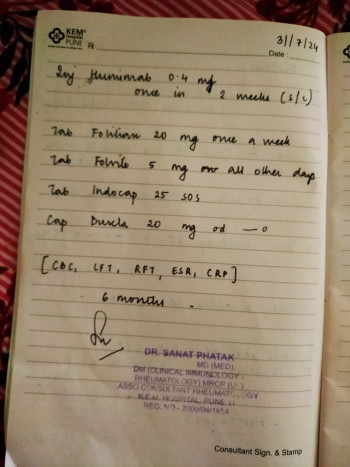 KEM
Hospital
PUNE
R
31/7/24
Date :
Inj Humimab 0.4 mg
once in 2 weeks (S/C)
Tab 20 mg once a week
Tab Folvite 5 mg on all other days
Tab Indocap 25 SOS
Cap 20 mg od
[CBC, LFT, RFT, ESR, CRP]
6 months
DR. SANAT PHATAK
MD (MED),
DM (CLINICAL IMMUNOLOGY -
RHEUMATOLOGY) MRCP
ASSO CONSULTANT RHEUMATOLOGY
K.E.M. HOSPITAL, PUNE 11
REG. NO.- 2009/04/1654
Consultant Sign. & Stamp